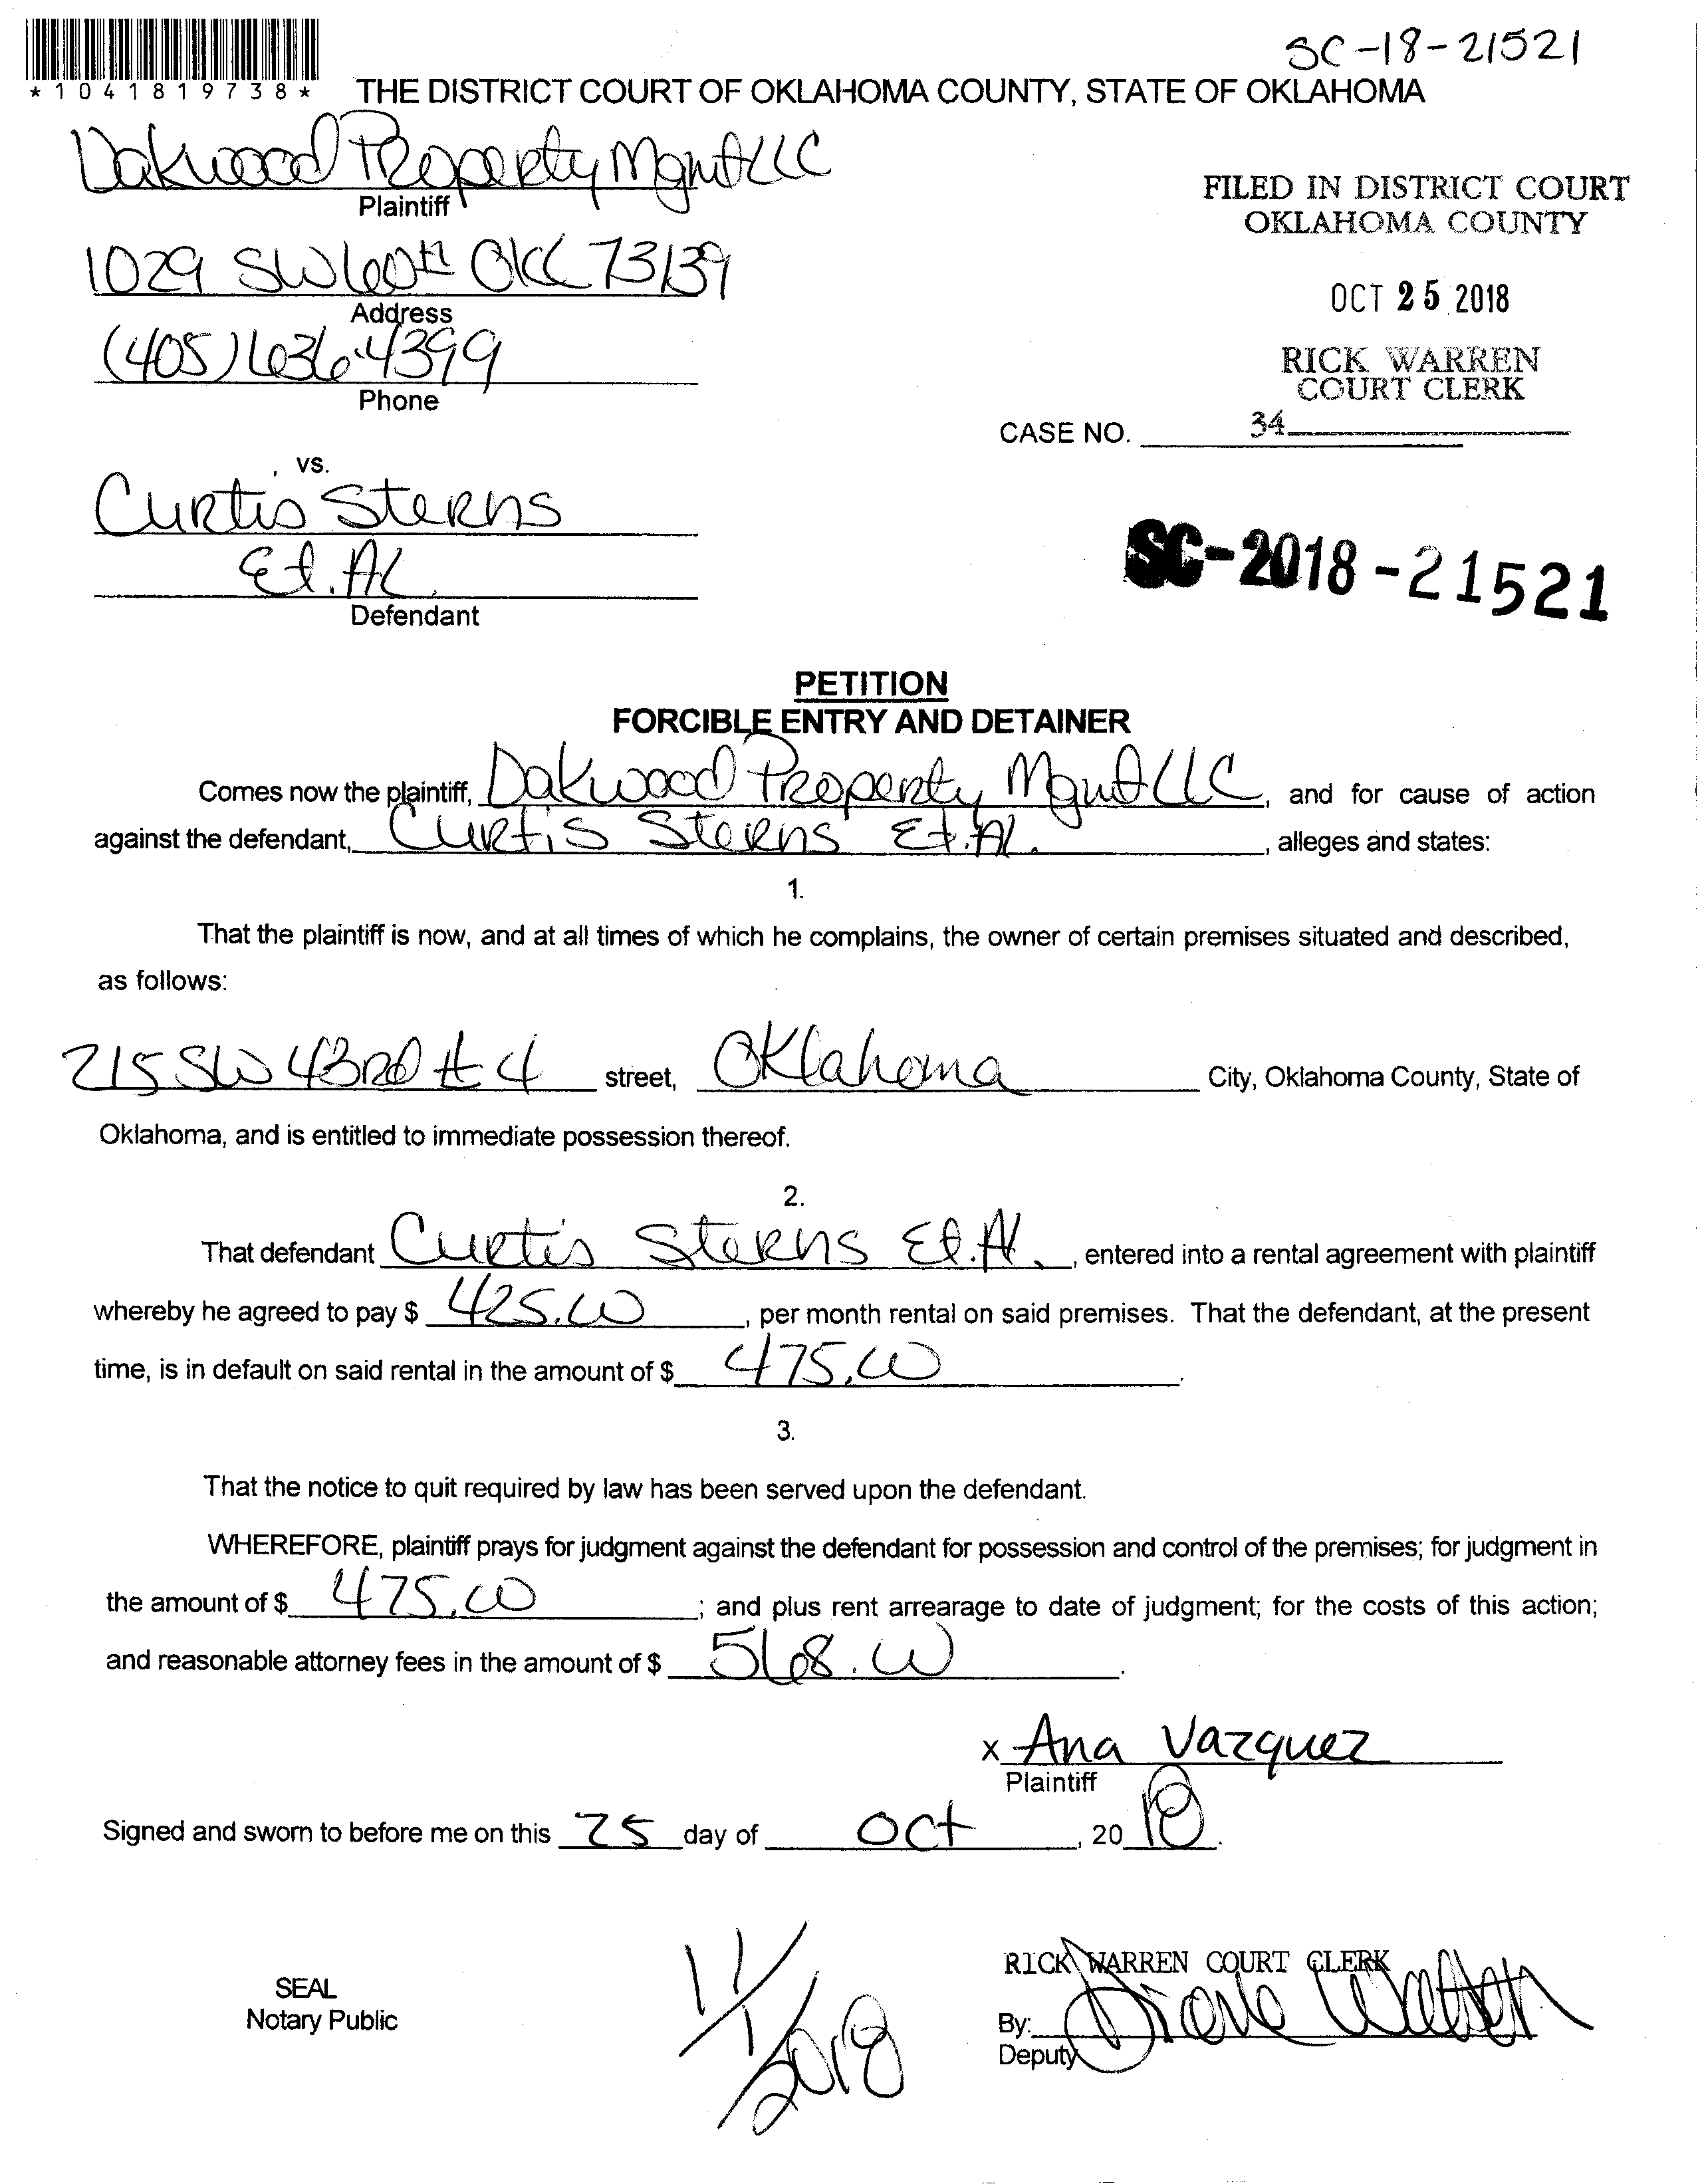 SC-18-21521
*1041819738*
THE DISTRICT COURT OF OKLAHOMA COUNTY, STATE OF OKLAHOMA
Oakwood Property Mgmt LLC
Plaintiff
FILED IN DISTRICT COURT
OKLAHOMA COUNTY
1029 SW 60th OKC 73139
Address
OCT 25 2018
(405) 636-4399
Phone
RICK WARREN
COURT CLERK
CASE NO.
34
vs.
Curtis Sterns
Et. Al.
Defendant
SC-2018-21521
PETITION
FORCIBLE ENTRY AND DETAINER
Comes now the plaintiff, Oakwood Property Mgmt LLC, and for cause of action
against the defendant, Curtis Sterns Et. Al., alleges and states:
1.
That the plaintiff is now, and at all times of which he complains, the owner of certain premises situated and described,
as follows:
215 SW 43rd #4 street, Oklahoma City, Oklahoma County, State of
Oklahoma, and is entitled to immediate possession thereof.
2.
That defendant Curtis Sterns Et. Al., entered into a rental agreement with plaintiff
whereby he agreed to pay $ 425.00, per month rental on said premises. That the defendant, at the present
time, is in default on said rental in the amount of $ 475.00.
3.
That the notice to quit required by law has been served upon the defendant.
WHEREFORE, plaintiff prays for judgment against the defendant for possession and control of the premises; for judgment in
the amount of $ 475.00; and plus rent arrearage to date of judgment; for the costs of this action;
and reasonable attorney fees in the amount of $ 568.00.
x Ana Vazquez
Plaintiff
Signed and sworn to before me on this 25 day of Oct, 2018.
SEAL
Notary Public
11/1/2018
RICK WARREN COURT CLERK
By: Diane Walton
Deputy